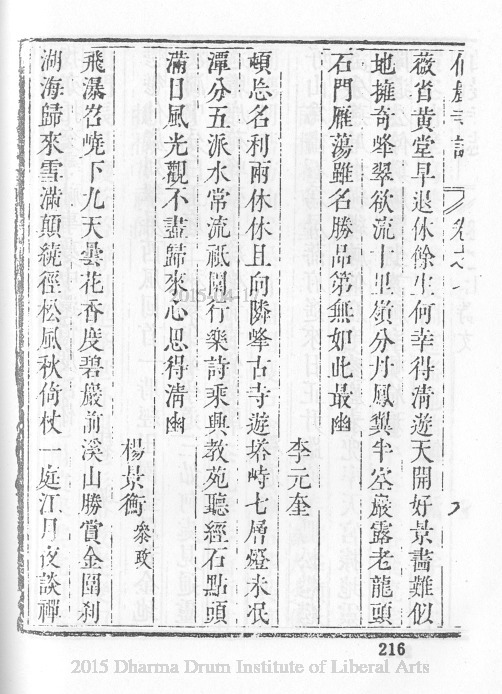 薇省黃堂早退休餘生何幸得清遊天開好景畫難似
地擁奇峰翠欲流十里嶺分丹鳳翼半空巖露老龍頭
石門雁蕩雖名勝品第無如此最幽
李元奎
頓忘名利兩休休且向隣峰古寺遊塔峙七層燈未泯
潭分五派水常流祇園行樂詩乘興教苑聽經石點頭
滿目風光觀不盡歸來心思得清幽
楊景衡 叅政
飛瀑岧嶢下九天曇花香度碧巖前溪山勝賞金園刹
湖海歸來雪滿顛繞徑松風秋倚杖一庭江月夜談禪
216
2015 Dharma Drum Institute of Liberal Arts